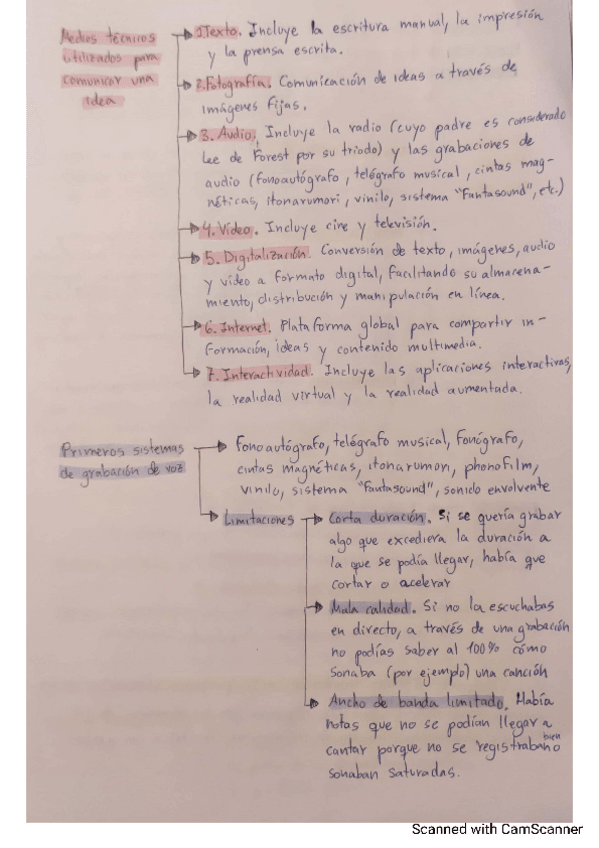 Medios técnicos utilizados para comunicar una idea
1Texto. Incluye la escritura manual, la impresión
y la prensa escrita.
2. Fotografía. Comunicación de ideas a través de
imágenes fijas.
3. Audio. Incluye la radio (cuyo padre es considerado
Lee de Forest por su triodo) y las grabaciones de
audio (fonoautógrafo, telégrafo musical, cintas mag-
néticas, itonarumori, vinilo, sistema "Fantasound", etc.)
4. Vídeo. Incluye cine y televisión.
5. Digitalización. Conversión de texto, imágenes, audio
y vídeo a formato digital, facilitando su almacena-
miento, distribución y manipulación en línea.
6. Internet. Plataforma global para compartir in-
formación, ideas y contenido multimedia.
7. Interactividad. Incluye las aplicaciones interactivas,
la realidad virtual y la realidad aumentada.
Primeros sistemas
de grabación de voz
Fonoautógrafo, telégrafo musical, fonógrafo,
cintas magnéticas, itonarumori, phonofilm,
vinilo, sistema "Fantasound", sonido envolvente
Limitaciones
Corta duración. Si se quería grabar
algo que excediera la duración a
la que se podía llegar, había que
cortar o acelerar
Mala calidad. Si no la escuchabas
en directo, a través de una grabación
no podías saber al 100% cómo
sonaba (por ejemplo) una canción
Ancho de banda limitado. Había
notas que no se podían llegar a
cantar porque no se registraban bien o
sonaban saturadas.
Scanned with CamScanner